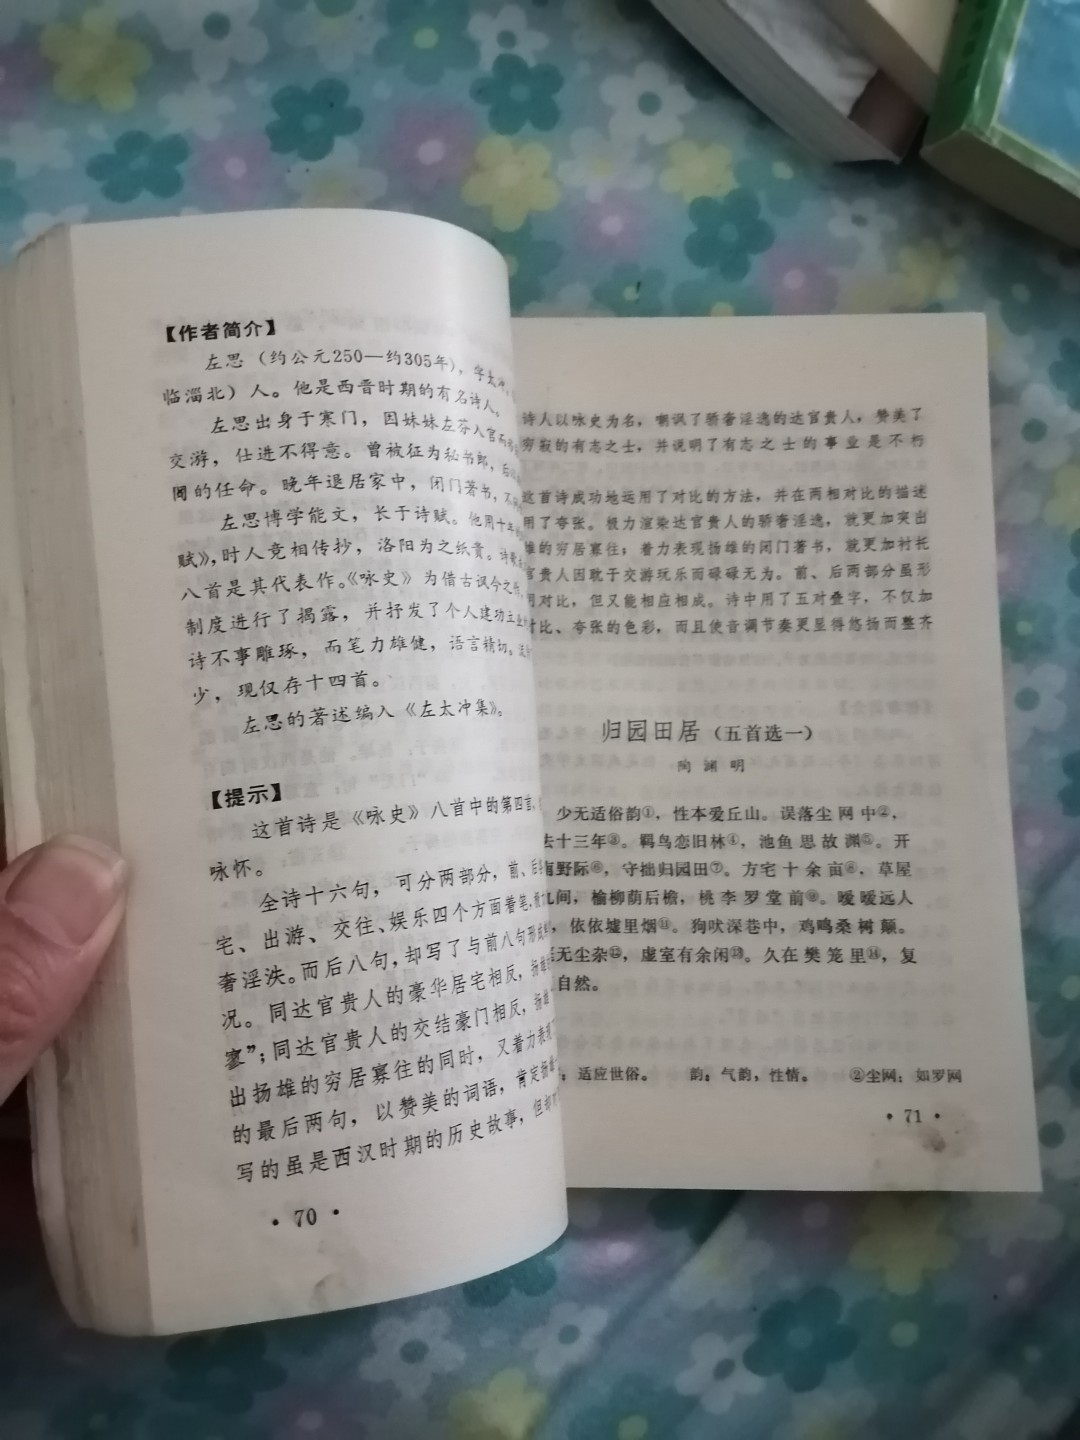 【作者简介】
左思（约公元250—约305年），字太冲，
临淄北）人。他是西晋时期的有名诗人。
左思出身于寒门，因妹妹左芬入宫
交游，仕进不得意。曾被征为秘书郎，后
阎的任命。晚年退居家中，闭门著书，不
左思博学能文，长于诗赋。他用十年
赋》，时人竞相传抄，洛阳为之纸贵。诗
八首是其代表作。《咏史》为借古讽今之作，
制度进行了揭露，并抒发了个人建功立业
诗不事雕琢，而笔力雄健，语言精切。
少，现仅存十四首。
左思的著述编入《左太冲集》。
【提示】
这首诗是《咏史》八首中的第四首，
咏怀。
全诗十六句，可分两部分，前、后
宅、出游、交往、娱乐四个方面着笔，
奢淫泆。而后八句，却写了与前八句形成
况。同达官贵人的豪华居宅相反，扬雄
寥”；同达官贵人的交结豪门相反，扬雄
出扬雄的穷居寡往的同时，又着力表现
的最后两句，以赞美的词语，肯定扬雄
写的虽是西汉时期的历史故事，但却
• 70 •
诗人以咏史为名，嘲讽了骄奢淫逸的达官贵人，赞美了
穷寂的有志之士，并说明了有志之士的事业是不朽
这首诗成功地运用了对比的方法，并在两相对比的描述
用了夸张。极力渲染达官贵人的骄奢淫逸，就更加突出
雄的穷居寡往；着力表现扬雄的闭门著书，就更加衬托
官贵人因耽于交游玩乐而碌碌无为。前、后两部分虽形
明对比，但又能相应相成。诗中用了五对叠字，不仅加
对比、夸张的色彩，而且使音调节奏更显得悠扬而整齐
归园田居（五首选一）
陶渊明
少无适俗韵①，性本爱丘山。误落尘网中②，
去十三年③。羁鸟恋旧林④，池鱼思故渊⑤。开
野际⑥，守拙归园田⑦。方宅十余亩⑧，草屋
间，榆柳荫后檐，桃李罗堂前⑨。暧暧远人
，依依墟里烟⑪。狗吠深巷中，鸡鸣桑树颠。
无尘杂⑫，虚室有余闲⑬。久在樊笼里⑭，复
自然。
：适应世俗。 韵：气韵，性情。 ②尘网：如罗网
• 71 •